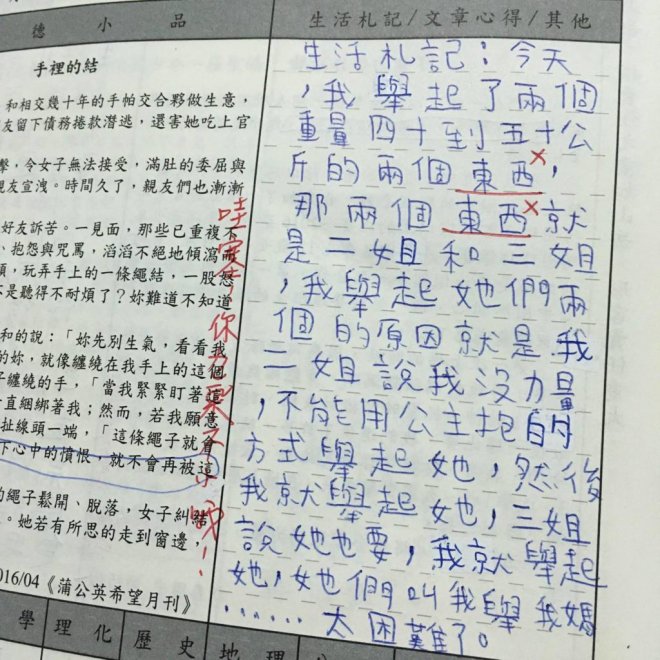 德小品
生活札記/文章心得/其他
手裡的結
和相交幾十年的手帕交合夥做生意，
友留下債務捲款潛逃，還害她吃上官
擊，令女子無法接受，滿肚的委屈與
親友宣洩。時間久了，親友們也漸漸
好友訴苦。一見面，那些已重複不
、抱怨與咒罵，滔滔不絕地傾瀉而
頭，玩弄手上的一條繩結，一股怒
不是聽得不耐煩了？妳難道不知道
和的說：「妳先別生氣，看看我
的妳，就像纏繞在我手上的這個
子纏繞的手，「當我緊緊盯著這
直綑綁著我；然而，若我願意
扯線頭一端，「這條繩子就會
下心中的憤恨，就不會再被這
的繩子鬆開、脫落，女子糾結
。她若有所思的走到窗邊，
016/04《蒲公英希望月刊》
學 理化 歷史 地理
生活札記：今天
，我舉起了兩個
重量四十到五十公
斤的兩個東西，
那兩個東西就
是二姐和三姐
，我舉起她們兩
個的原因就是我
二姐說我沒力量
，不能用公主抱的
方式舉起她，然後
我就舉起她，三姐
說她也要，我就舉起
她，她們叫我舉我媽
……太困難了。
哇塞，你力